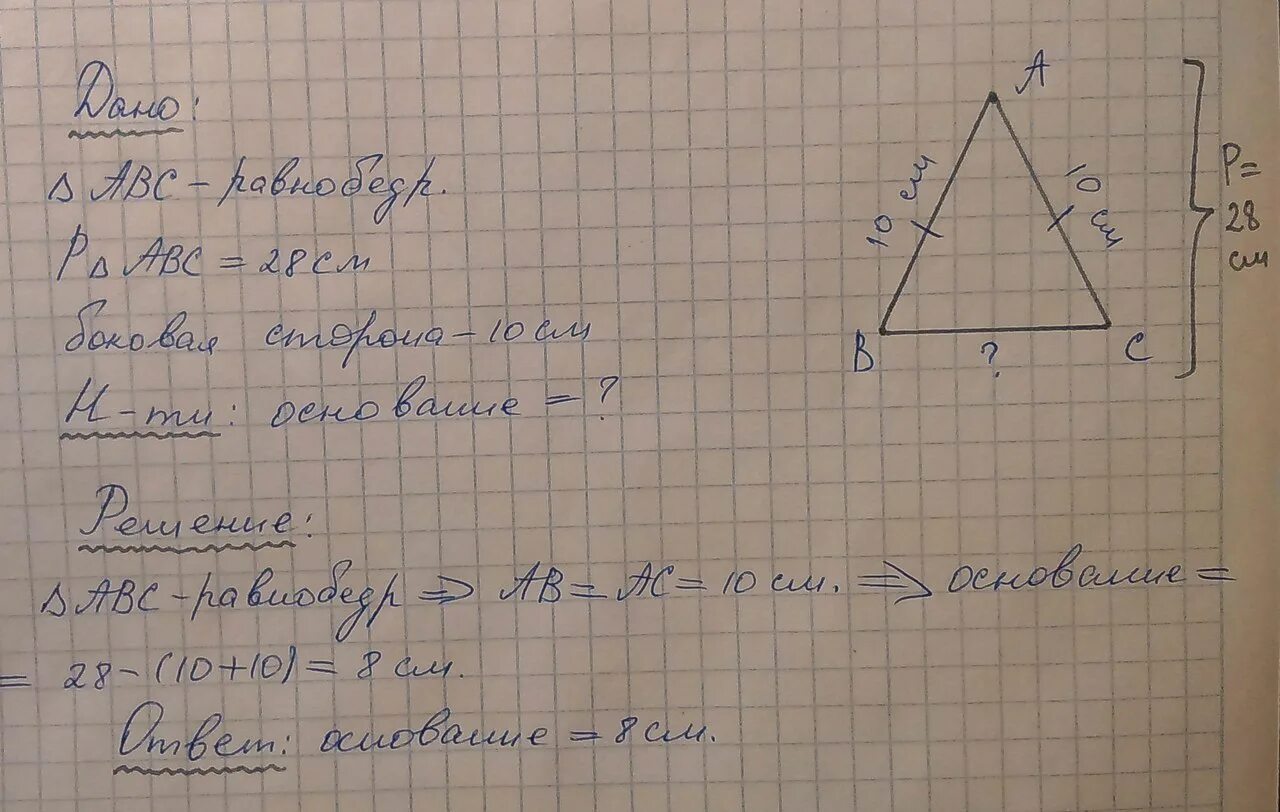 Дано:
△ ABC - равнобедр.
P△ ABC = 28 см
боковая сторона - 10 см
Н-ти: основание = ?
A
10 см
10 см
B
?
C
P=
28
см
Решение:
△ ABC - равнобедр ⇒ AB = AC = 10 см. ⇒ основание =
= 28 - (10+10) = 8 см.
Ответ: основание = 8 см.